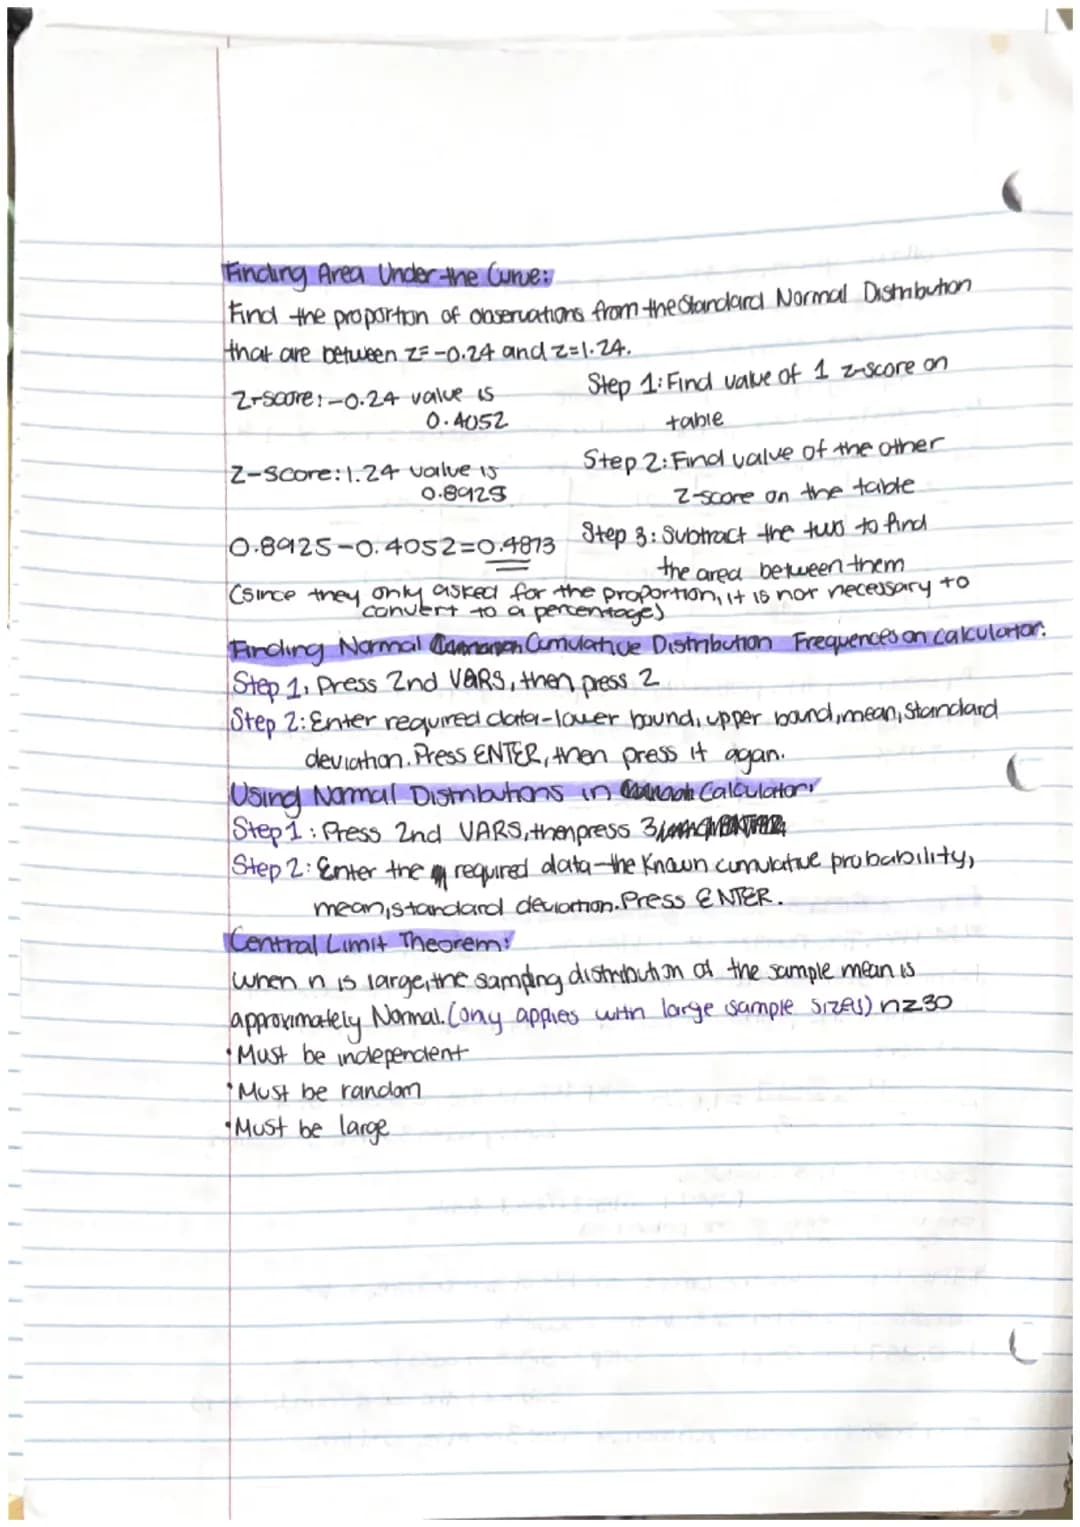 Finding Area Under the Curve:
Find the proportion of observations from the Standard Normal Distribution
that are between z=-0.24 and z=1.24.
Z-score:-0.24 value is
0.4052
Step 1: Find value of 1 z-score on
table
Z-score: 1.24 value is
0.8925
Step 2: Find value of the other
Z-score on the table
0.8925-0.4052=0.4873
Step 3: Subtract the two to find
the area between them
(since they only asked for the proportion, it is not necessary to
convert to a percentage)
Finding Normal Cumulative Distribution Frequences on calculator:
Step 1: Press 2nd VARS, then press 2
Step 2: Enter required data-lower bound, upper bound, mean, standard
deviation. Press ENTER, then press it again.
Using Normal Distributions in Calculator:
Step 1: Press 2nd VARS, then press 3
Step 2: Enter the required data-the known cumulative probability,
mean, standard deviation. Press ENTER.
Central Limit Theorem:
When n is large, the sampling distribution of the sample mean is
approximately Normal. (only applies with large sample sizes) n≥30
•Must be independent
•Must be random
•Must be large